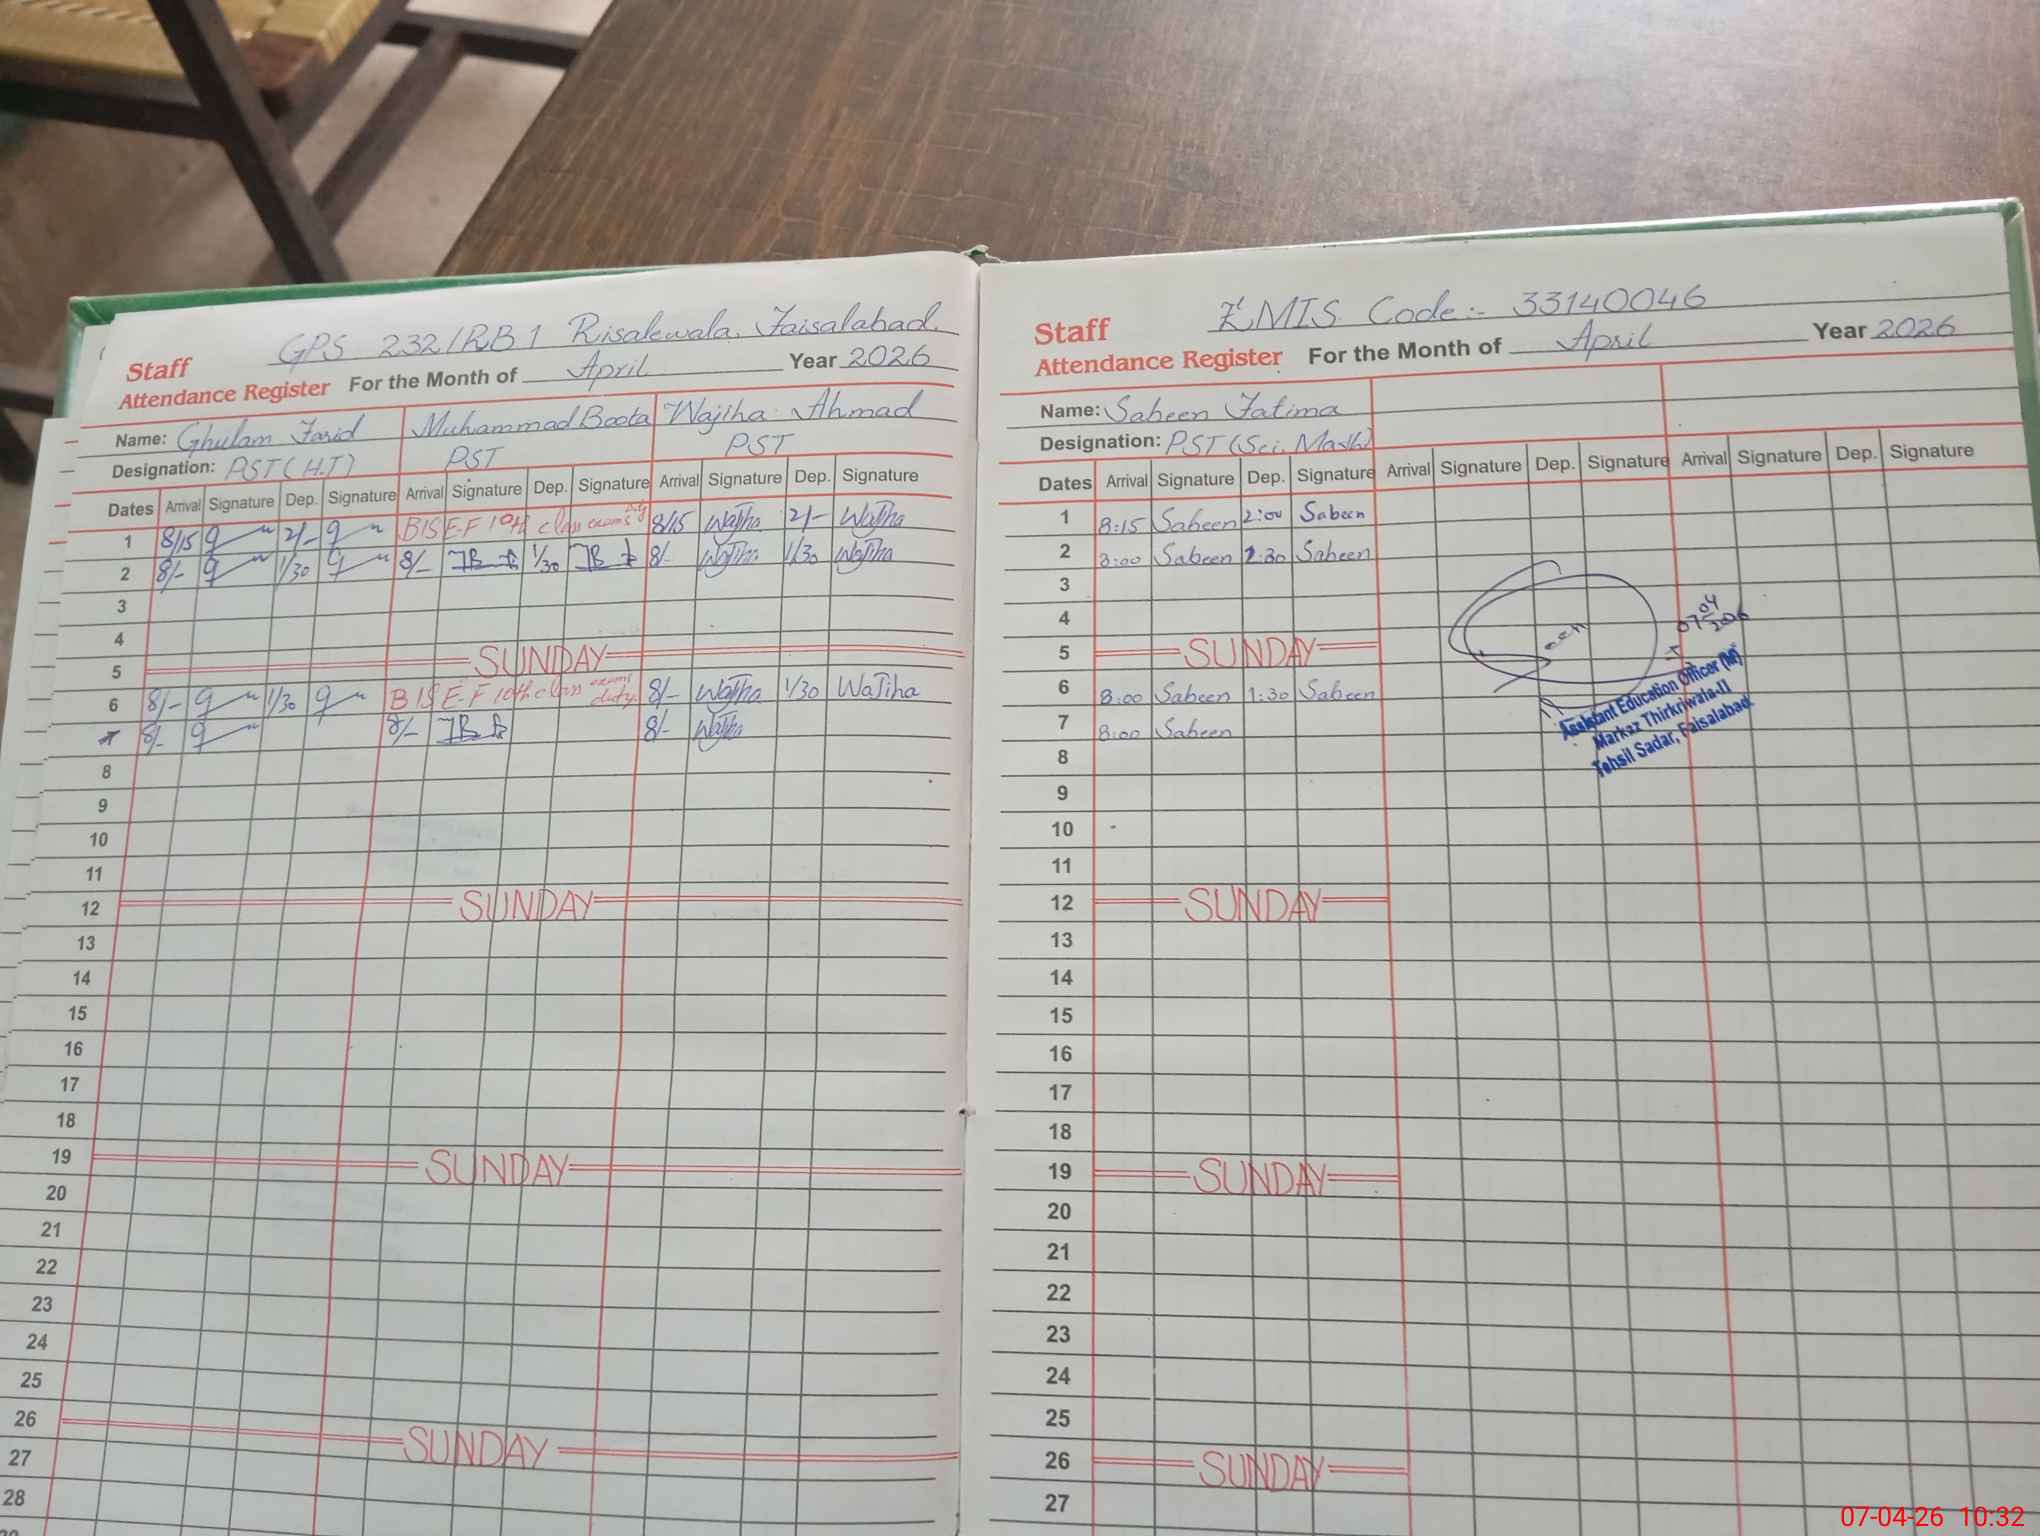 GPS 232/RB 1 Risalewala, Faisalabad.
Staff
Attendance Register For the Month of April Year 2026
Name: Ghulam Farid Muhammad Boota Wajiha Ahmad
Designation: PST (H.T) PST PST
Dates Arrival Signature Dep. Signature Arrival Signature Dep. Signature Arrival Signature Dep. Signature
1 8/15 2/- BISE-F 10th class exams 8/15 Wajiha 2/- Wajiha
2 8/- 1/30 8/- 1/30 8/- Wajiha 1/30 Wajiha
3
4
5 SUNDAY
6 8/- 1/30 BISE-F 10th class exams duty. 8/- Wajiha 1/30 Wajiha
8/- 8/- 8/- Wajiha
8
9
10
11
12 SUNDAY
13
14
15
16
17
18
19 SUNDAY
20
21
22
23
24
25
26 SUNDAY
27
28
EMIS Code:- 33140046
Staff
Attendance Register For the Month of April Year 2026
Name: Sabeen Fatima
Designation: PST (Sci. Math)
Dates Arrival Signature Dep. Signature Arrival Signature Dep. Signature Arrival Signature Dep. Signature
1 8:15 Sabeen 2:00 Sabeen
2 8:00 Sabeen 1:30 Sabeen
3
4
5 SUNDAY
6 8:00 Sabeen 1:30 Sabeen
7 8:00 Sabeen
8
9
10
11
12 SUNDAY
13
14
15
16
17
18
19 SUNDAY
20
21
22
23
24
25
26 SUNDAY
27
07 04 2026
Assistant Education Officer (M)
Markaz Thirkriwala-II
Tehsil Sadar, Faisalabad
07-04-26 10:32